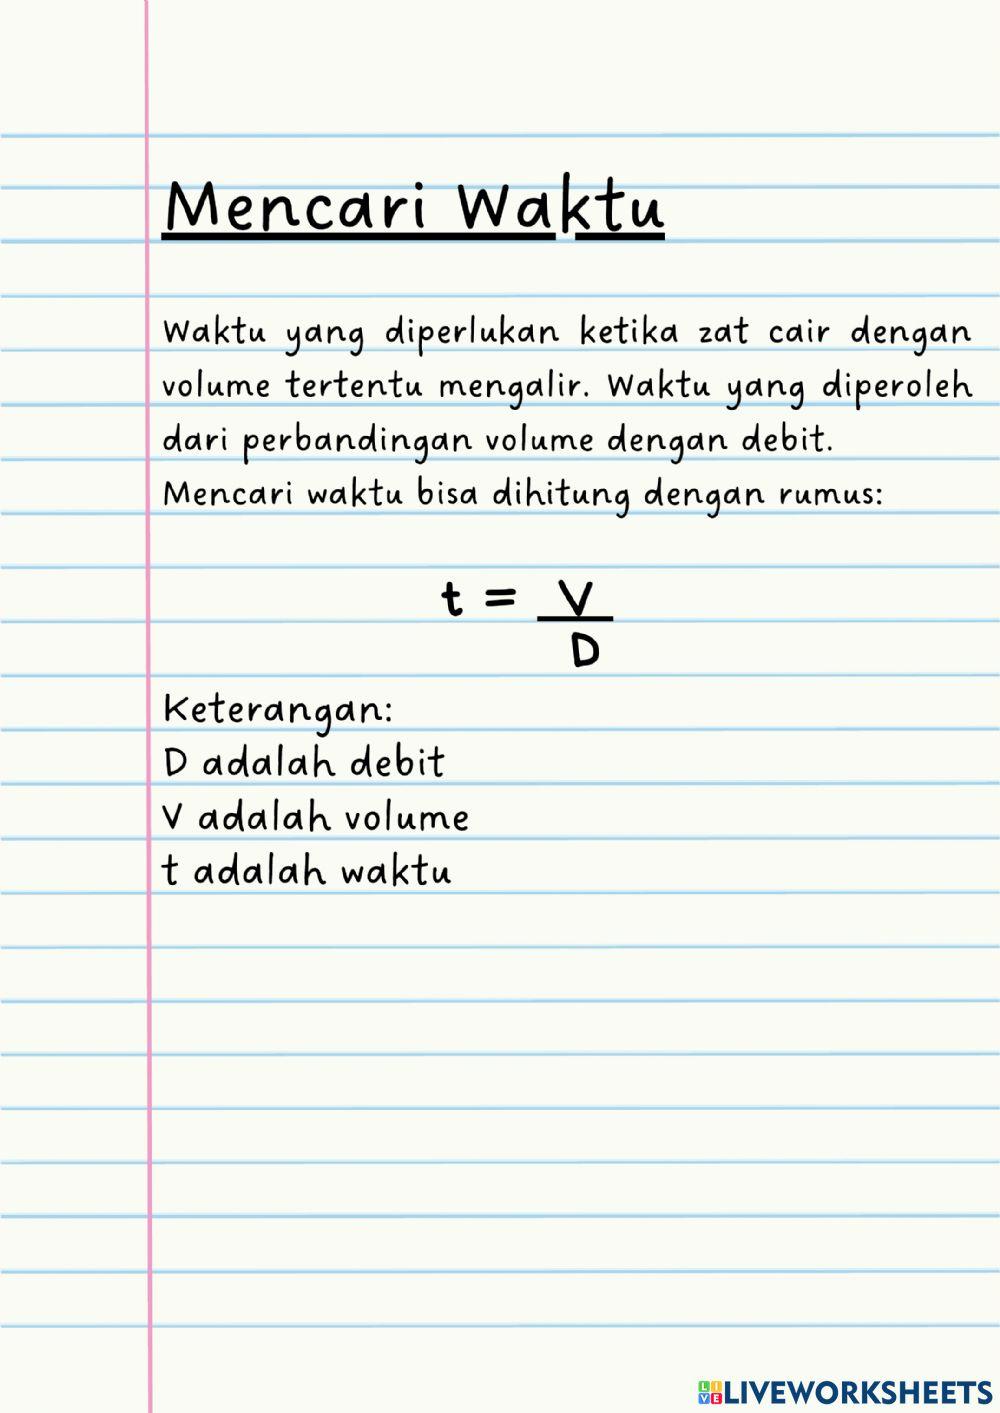 Mencari Waktu
Waktu yang diperlukan ketika zat cair dengan
volume tertentu mengalir. Waktu yang diperoleh
dari perbandingan volume dengan debit.
Mencari waktu bisa dihitung dengan rumus:
t = V
D
Keterangan:
D adalah debit
V adalah volume
t adalah waktu
LIVE LIVEWORKSHEETS